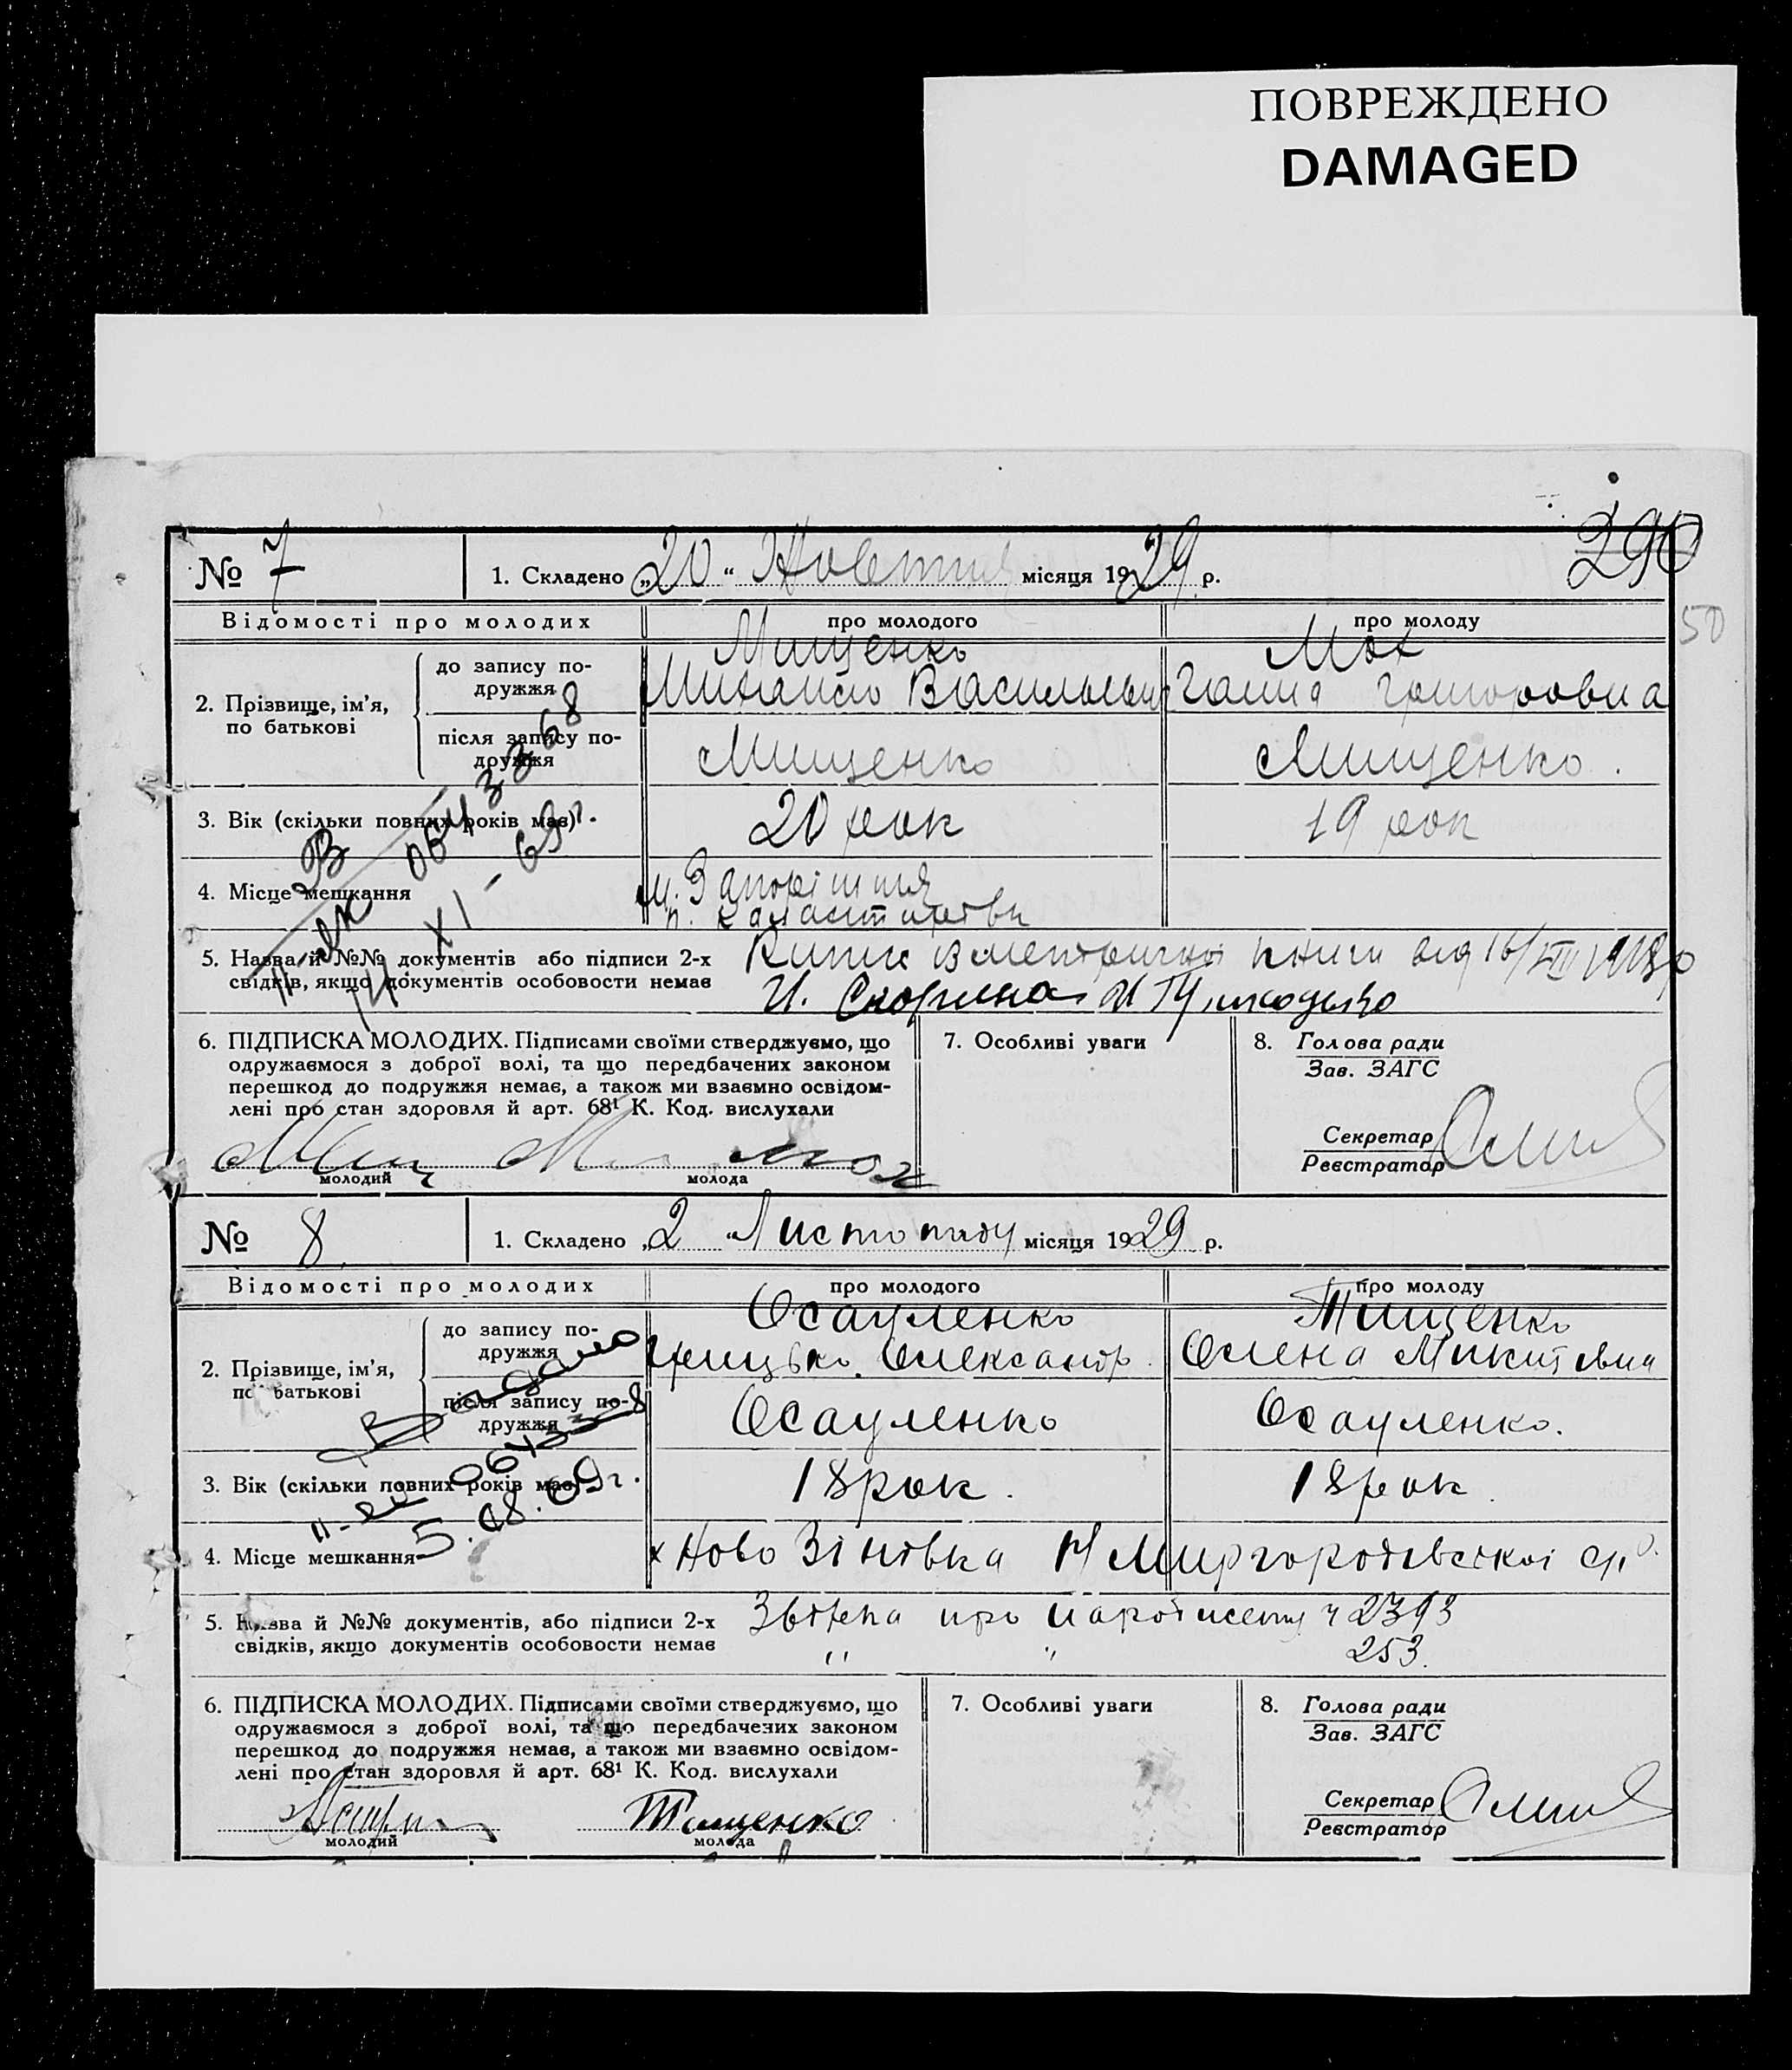 ПОВРЕЖДЕНО
DAMAGED
290
50
№ 7
1. Складено „20“ місяця 1929 р.
Відомості про молодих
про молодого
про молоду
2. Прізвище, ім’я, по батькові
до запису подружжя
Мищенко
Михайло Васильевич
Мох
Ганна Григоровна
після запису подружжя
Мищенко
Мищенко.
3. Вік (скільки повних років має)
20 рок
19 рок
4. Місце мешкання
м. Запоріжжя
5. Назва й №№ документів або підписи 2-х
свідків, якщо документів особовости немає
книги від 16/VIII
XI - 69 г.
6. ПІДПИСКА МОЛОДИХ. Підписами своїми стверджуємо, що
одружаємося з доброї волі, та що передбачених законом
перешкод до подружжя немає, а також ми взаємно освідом-
лені про стан здоровля й арт. 68¹ К. Код. вислухали
молодий
молода
Мох
7. Особливі уваги
8. Голова ради
Зав. ЗАГС
Секретар
Реєстратор
№ 8
1. Складено „2“ Листопаду місяця 1929 р.
Відомості про молодих
про молодого
про молоду
2. Прізвище, ім’я, по батькові
до запису подружжя
Осауленко
Грицько Олександр.
Тищенко
Олена Микитивна
після запису подружжя
Осауленко
Осауленко.
3. Вік (скільки повних років має)
18 рок.
18 рок.
4. Місце мешкання
х Ново Зіновка Миргородської
5. Назва й №№ документів, або підписи 2-х
свідків, якщо документів особовости немає
про народження ч 2393
" " 253.
Видано
5.08.69 г.
6. ПІДПИСКА МОЛОДИХ. Підписами своїми стверджуємо, що
одружаємося з доброї волі, та що передбачених законом
перешкод до подружжя немає, а також ми взаємно освідом-
лені про стан здоровля й арт. 68¹ К. Код. вислухали
молодий
Тищенко
молода
7. Особливі уваги
8. Голова ради
Зав. ЗАГС
Секретар
Реєстратор